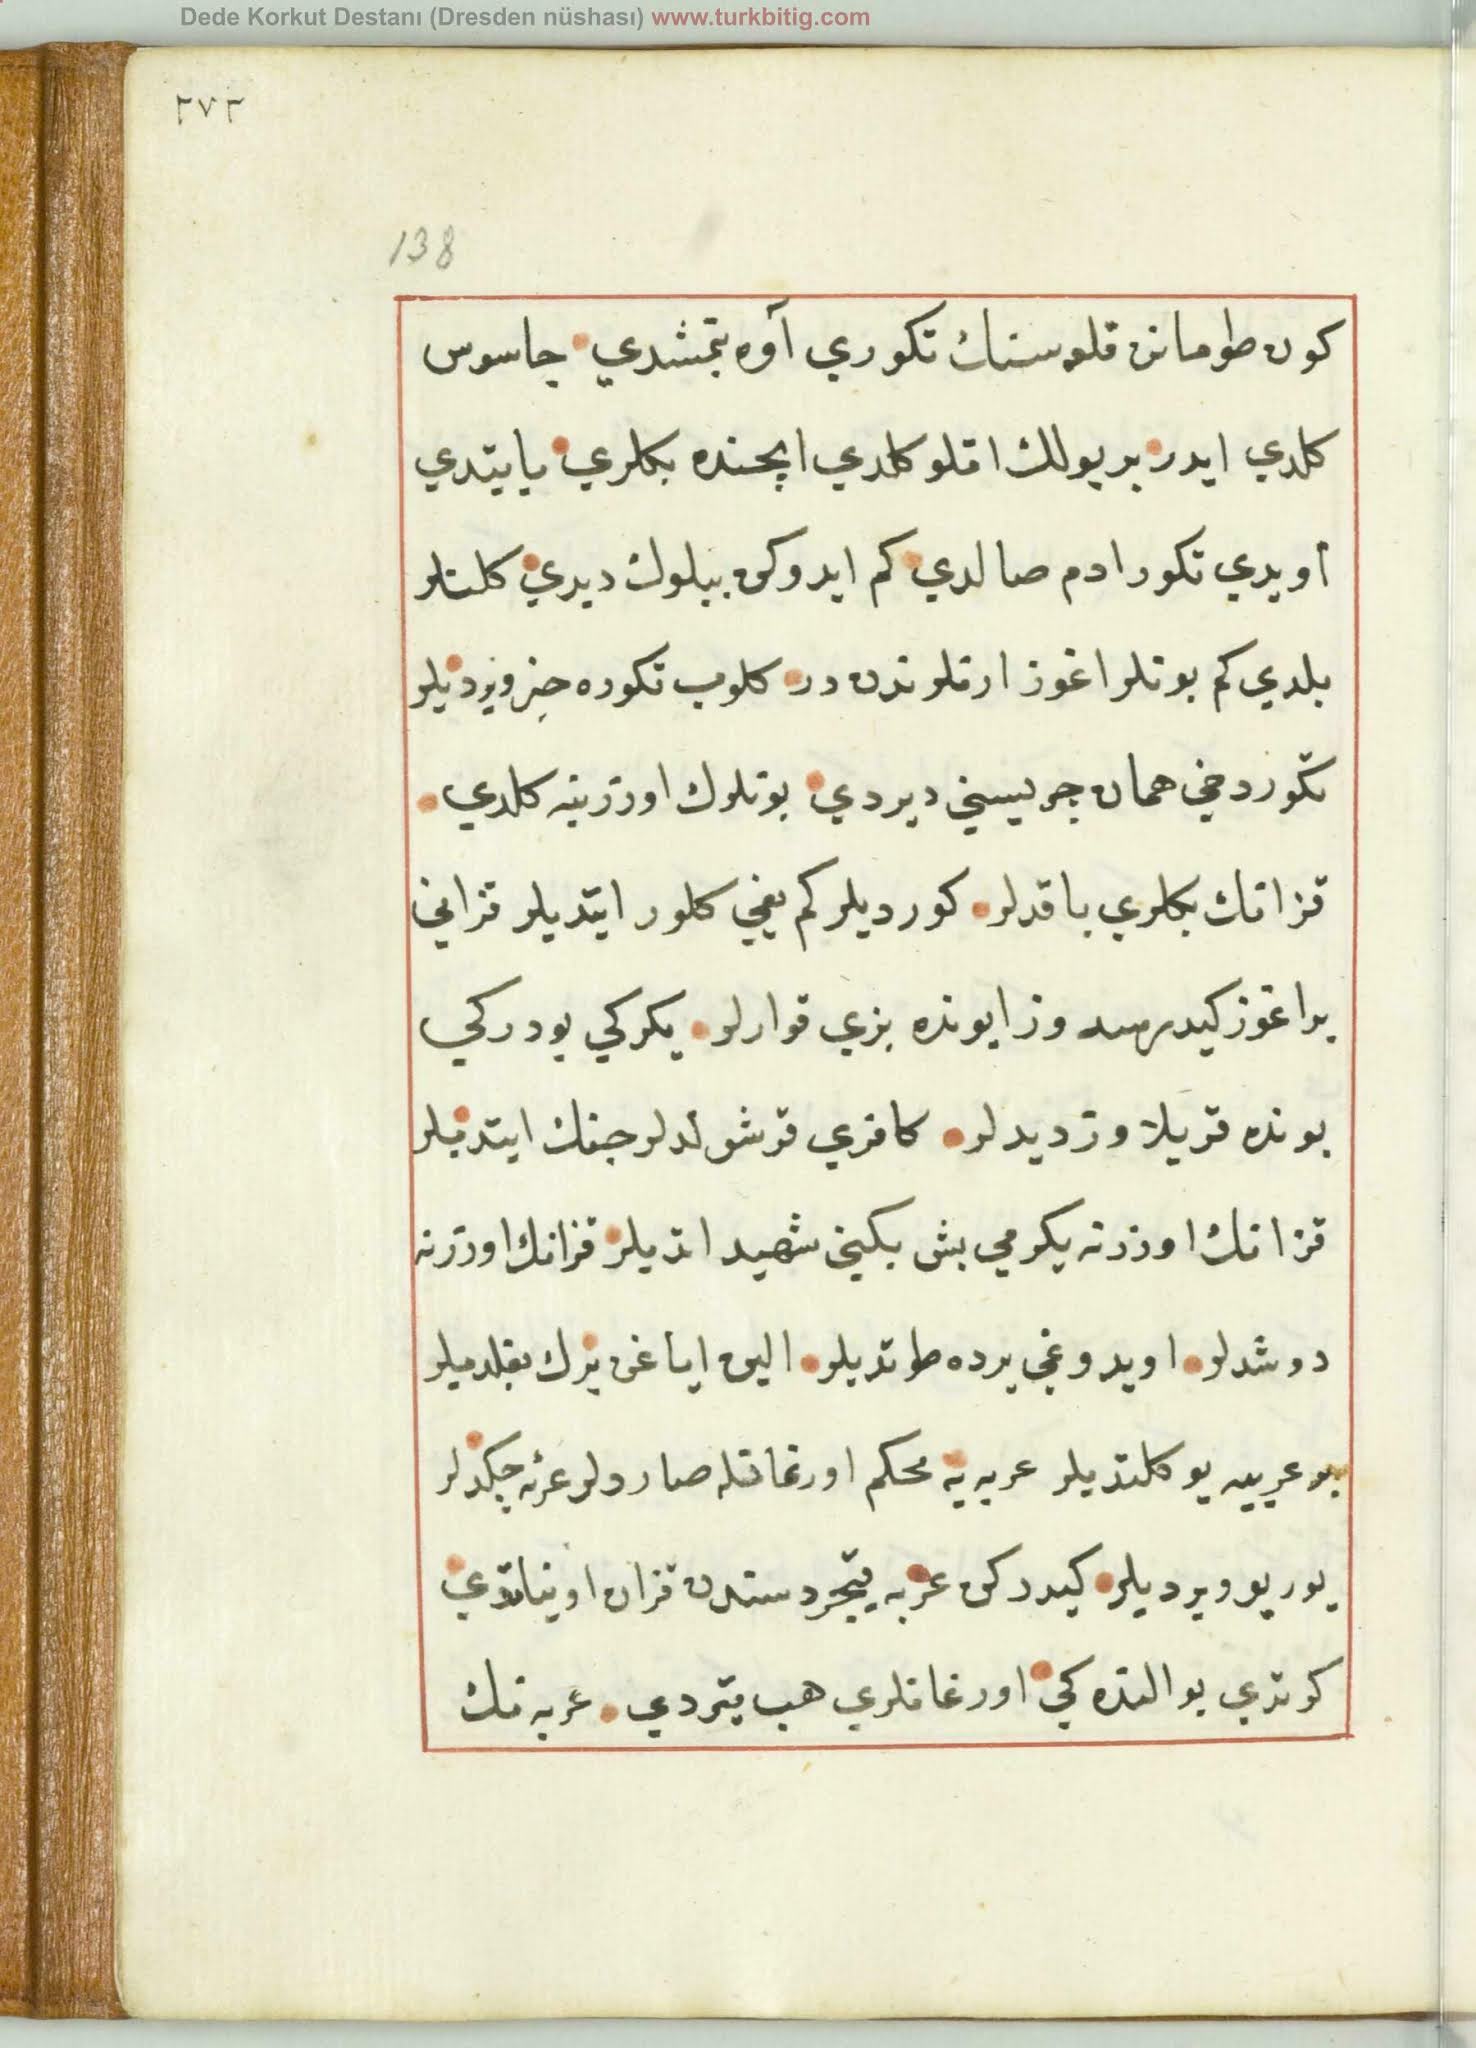 Dede Korkut Destanı (Dresden nüshası) www.turkbitig.com
٢٧٣
138
كون طومانن قلعه سنك تكوري آوه بتمشدي جاسوس
كلدي ايدر بر بولك اتلو كلدي ايچنده بكلري يايتدي
اويدي تكور ادم صالدي كم ايدوكن بيلوك ديدي كلنلر
بلدي كم بونلر اغوز ارنلرندن در كلوب تكوره خبر ويرديلر
تكور دخي همان جريسيني ديردي بونلرك اوزرينه كلدي
قزانك بكلري باقدلر كورديلر كم يغي كلور ايتديلر قزاني
براغوز كيدرسه وز ايونده بزي قوارلر يكركي بودركي
بونده قريلا وز ديدلر كافري قرشولدلر جنك ايتديلر
قزانك اوزرنه يكرمي بش بكيني شهيد اتديلر قزانك اوزرنه
دوشدلر اويدوغي يرده طوتديلر الين اياغن برك بغلديلر
بر عربيه يوكلتديلر عربه يه محكم اورغانله صاردلر عربه چكدلر
يوريو ويرديلر كيدركن عربه يجردسندن قزان اوينانوي
كوتدي بو النده كي اورغانلري هب يتردي عربه نك